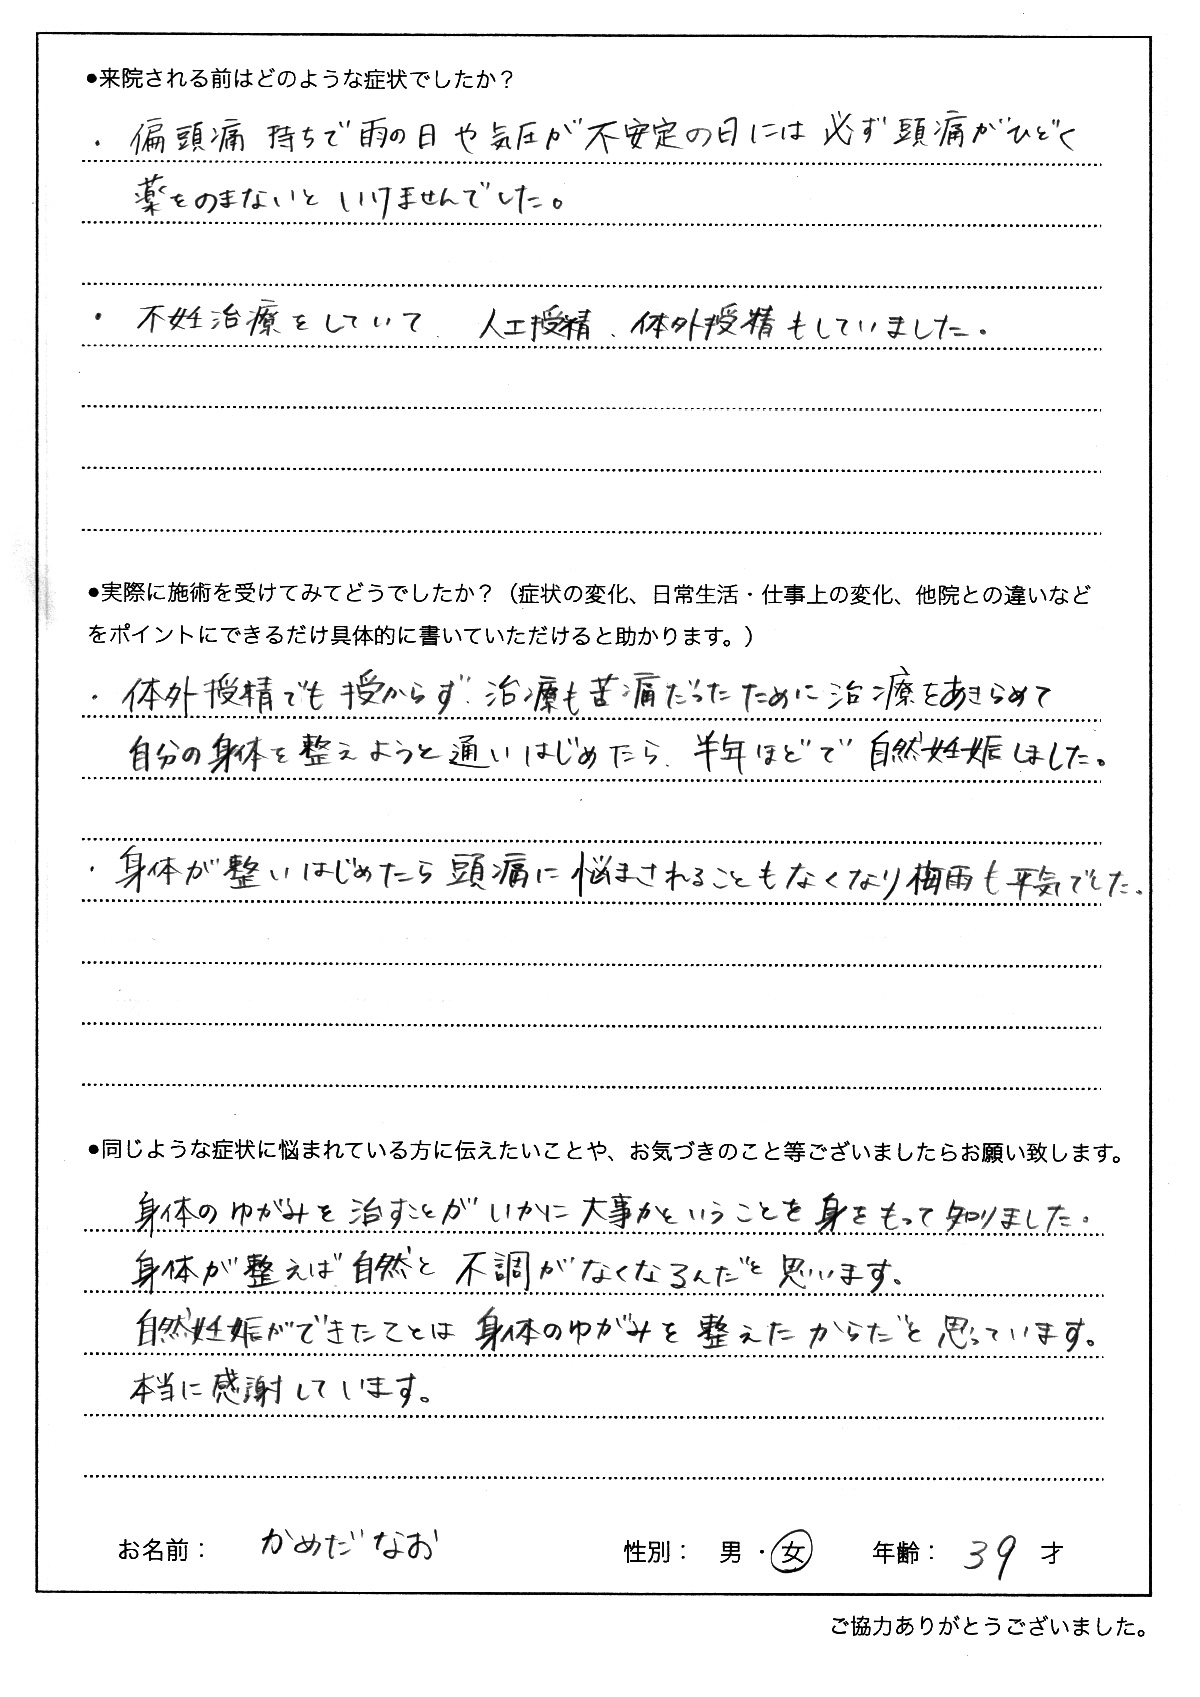 ●来院される前はどのような症状でしたか？
・偏頭痛持ちで雨の日や気圧が不安定の日には必ず頭痛がひどく
薬をのまないといけませんでした。
・不妊治療をしていて 人工授精、体外授精もしていました。
●実際に施術を受けてみてどうでしたか？（症状の変化、日常生活・仕事上の変化、他院との違いなど
をポイントにできるだけ具体的に書いていただけると助かります。）
・体外授精でも授からず、治療も苦痛だったために治療をあきらめて
自分の身体を整えようと通いはじめたら、半年ほどで自然妊娠しました。
・身体が整いはじめたら頭痛に悩まされることもなくなり梅雨も平気でした。
●同じような症状に悩まれている方に伝えたいことや、お気づきのこと等ございましたらお願い致します。
身体のゆがみを治すことがいかに大事かということを身をもって知りました。
身体が整えば自然と不調がなくなるんだと思います。
自然妊娠ができたことは身体のゆがみを整えたからだと思っています。
本当に感謝しています。
お名前： かめだなお 性別： 男・女 年齢： 39 才
ご協力ありがとうございました。